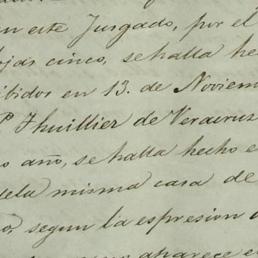 en este Jusgado, por el
ojas cinco, se halla he
ibidos en 13. de Noviem
P Thuillier de Veracruz
o año, se halla hecho e
dela misma casa de
o, segun la espresion
aparece e